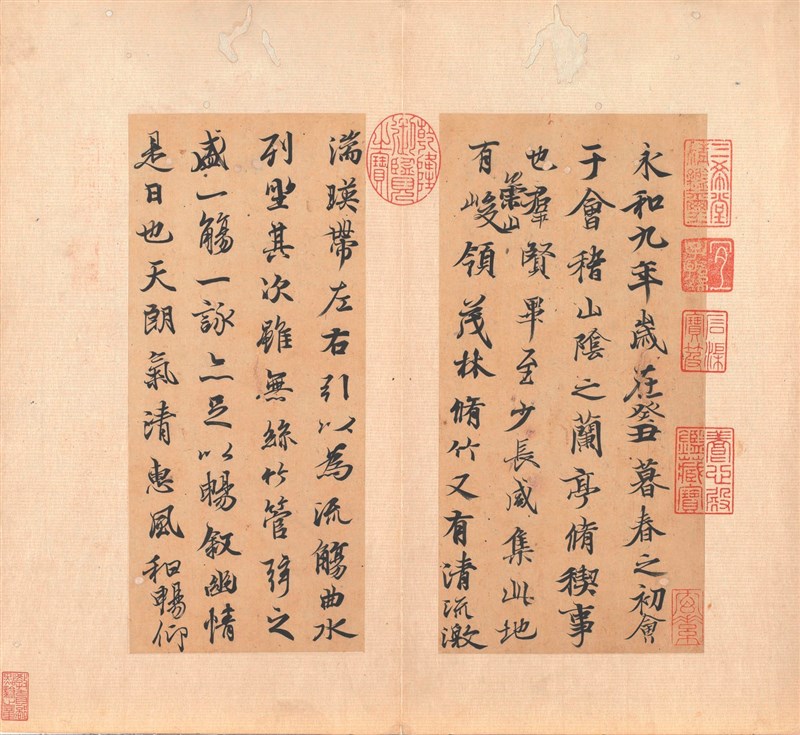 三希堂精鑑璽
宜子孫
石渠寶笈
養心殿鑑藏寶
永和九年歲在癸丑暮春之初會
于會稽山陰之蘭亭脩稧事
也羣賢畢至少長咸集此地
有崇山峻領茂林脩竹又有清流激
乾隆御覽之寶
湍暎帶左右引以為流觴曲水
列坐其次雖無絲竹管弦之
盛一觴一詠亦足以暢敘幽情
是日也天朗氣清惠風和暢仰